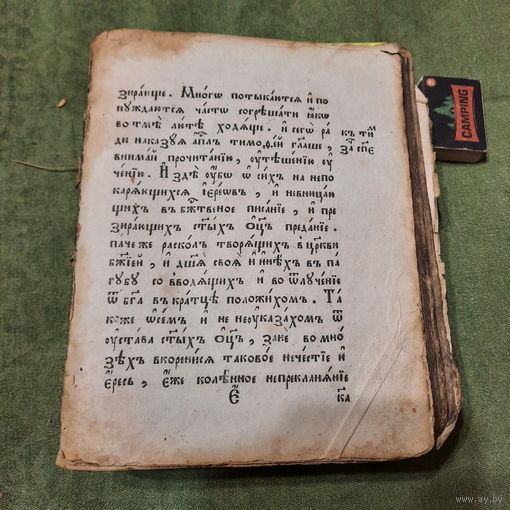 зира́юще. Мно́гѡ потыка́ются и҆ по
нуждаются ча́стѡ согрѣша́ти ꙗ҆́кѡ
во тмѣ̀ лю́тѣ ходя́ще. и҆ сегѡ̀ ра́
ди наказꙋ́я а҆п҃лъ тимоѳе́й гл҃аше,
внима́й прочита́нїю, ᲂу҆тѣше́нїю ᲂу҆
че́нїю. И҆ здѣ̀ ᲂу҆́бѡ ѡ҆ си́хъ на непо
каря́ющихся і҆ере́ѡвъ, и҆ невница́ю
щихъ въ бж҃твеное писа́нїе, и҆ пре
зира́ющихъ ст҃ы́хъ ѻ҆ц҃ъ преда́нїе.
паче же раско́лъ творя́щихъ в цр҃кви
бж҃їей, и҆ дш҃а̀ своя̀ и҆ и҆нѣ́хъ въ па́
гꙋбꙋ со вводя́щихъ и҆ во ѿлꙋче́нїе
ѿ бг҃а въ кра́тцѣ положи́хомъ. Та́
коже ѡ҆ се́мъ и҆ не неꙋказа́хомъ ѿ
ᲂу҆ста́ва ст҃ы́хъ ѻ҆ц҃ъ, за́не во мно́
зѣхъ вкорени́ся таково́е нече́стїе и҆
є҆́ресь, є҆́же колѣ́нное непрекланя́нїе
къ тим
за҃ сп҃е
є҃
ка
CAMPING
www.ay.by